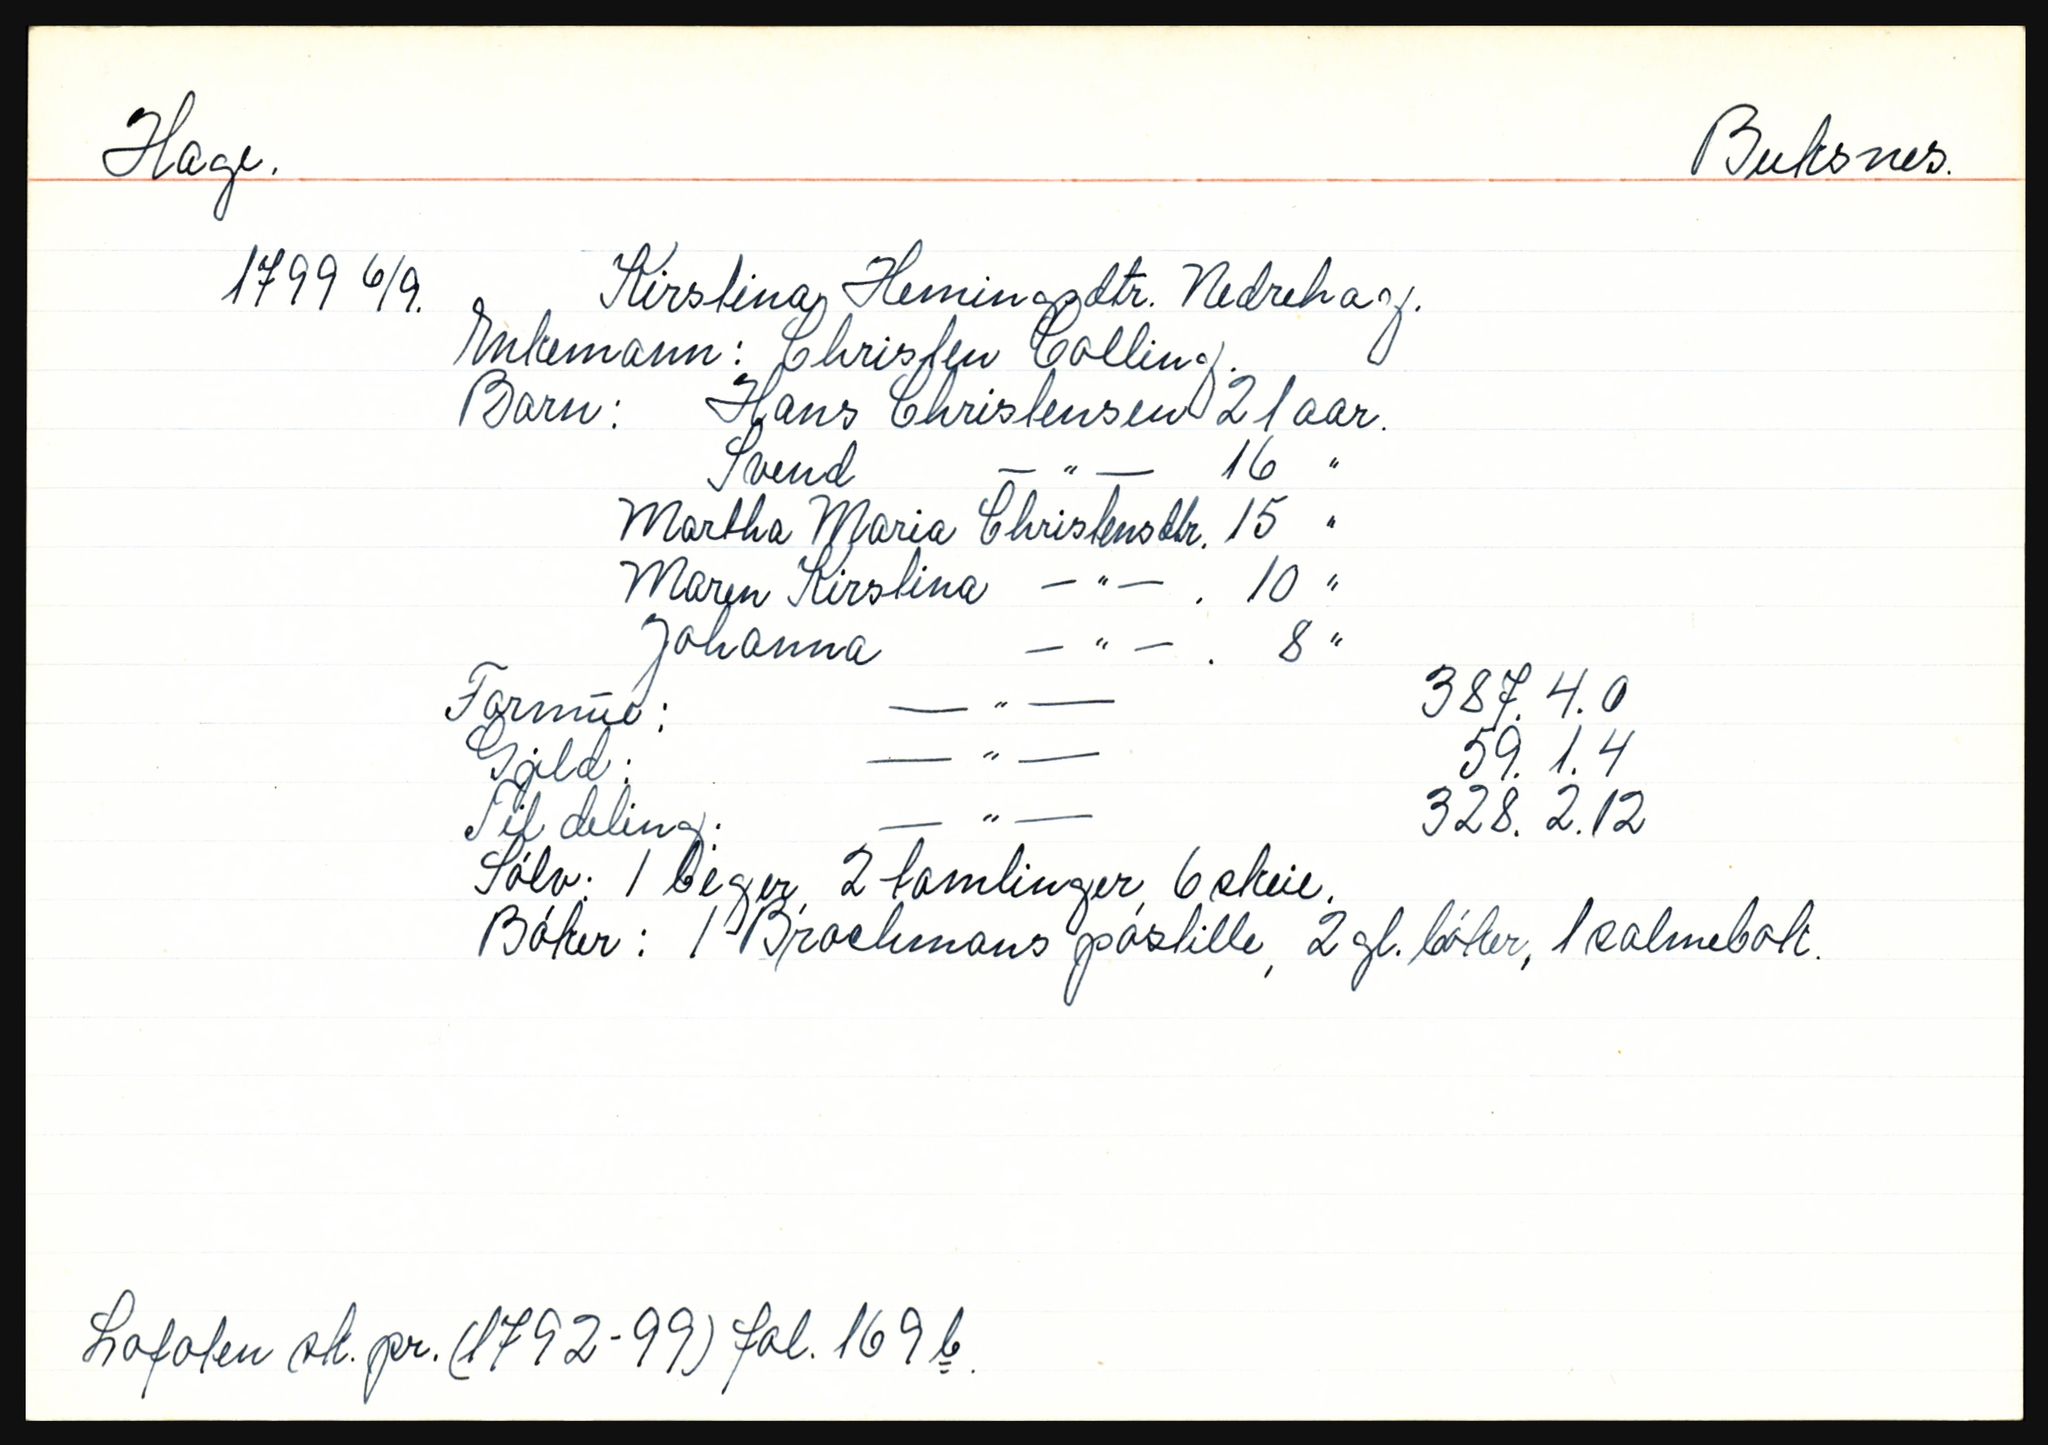 Hage. Buksnes.
1799 6/9. Kirstina Hemingsdtr. Nedrehag.
Enkemann: Christen Colling.
Barn: Hans Christensen 21 aar.
Svend — " — 16 "
Martha Maria Christensdtr. 15 "
Maren Kirstina — " — . 10 "
Johanna — " — . 8 "
Formue: — " — 387. 4. 0
Gjeld: — " — 59. 1. 4
Til deling: — " — 328. 2. 12
Sólv: 1 beger, 2 tomlinger, 6 skeie.
Bóker: 1 Brochmans postille, 2 gl. bóker, 1 salmebok.
Lofoten sk. pr. (1792-99) fol. 169 b.